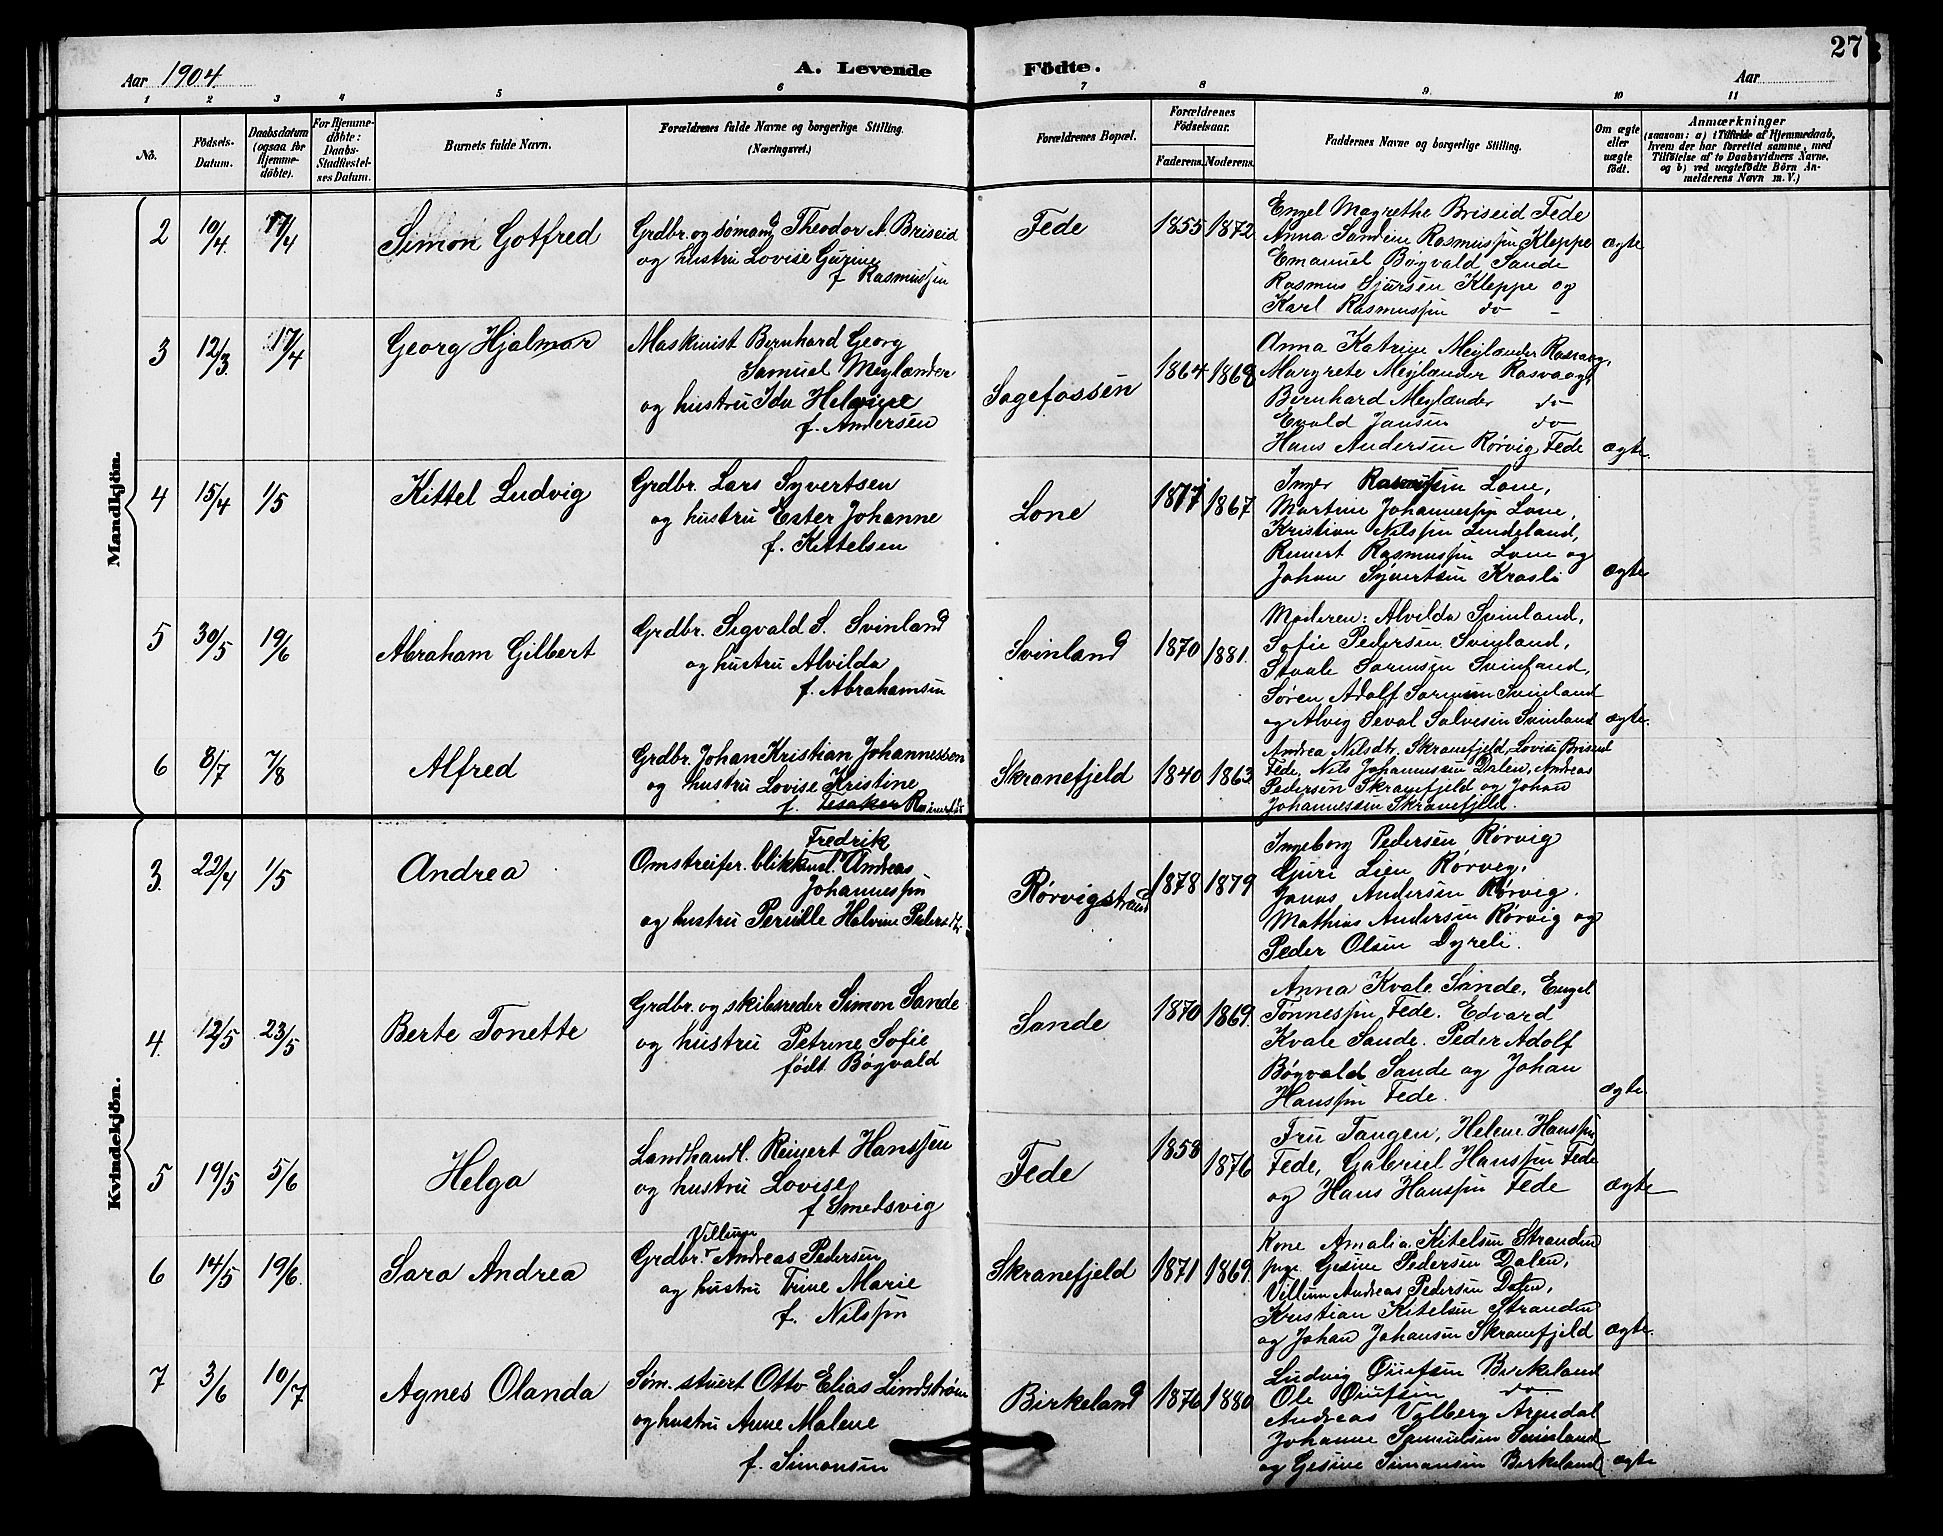 27
Aar 1904.
A. Levende Födte.
Aar
1 2 3 4 5 6 7 8 9 10 11
No.
Födsels-
Datum.
Daabsdatum
(ogsaa for
Hjemme-
döbte).
For Hjemme-
döbte:
Daabs-
Stadfæstel-
ses Datum.
Barnets fulde Navn.
Forældrenes fulde Navne og borgerlige Stilling.
(Næringsvei.)
Forældrenes Bopæl.
Forældrenes
Födselsaar.
Faderens. Moderens.
Faddernes Navne og borgerlige Stilling.
Om ægte
eller
uægte
födt.
Anmærkninger
(saasom: a) i Tilfælde af Hjemmedaab,
hvem der har forrettet samme, med
Tilföielse af to Daabsvidners Navne.
og b) ved uægtefödte Börn An-
melderens Navn m. V.)
Mandkjön.
2 19/4. 17/4 Simon Gotfred
Grdbr. og sømand Theodor A. Briseid
og hustru Lovise Gurine
f. Rasmussen
Fede 1855 1872
Engel Magrethe Briseid Fede
Anna Sandine Rasmussen Kleppe
Emanuel Bøgvald Sande
Rasmus Sjursen Kleppe og
Karl Rasmussen do -
ægte
3 12/3. 17/4 Georg Hjalmar
Maskinist Bernhard Georg
Samuel Meylænder
og hustru Ida Helvine
f. Andersen
Sagefossen 1864 1868
Anna Katrine Meylænder Rasvaag,
Margrete Meylænder Rasvaag,
Bernhard Meylænder do
Evald Jansen do
Hans Andersen Rørvig Fede
ægte.
4 15/4 1/5 Kittel Ludvig
Grdbr. Lars Syvertsen
og hustru Ester Johanne
f. Kittelsen
Lone 1877 1867
Inger Rasmussen Lone,
Martine Johannessen Lone,
Kristian Nilssen Lindeland,
Reinert Rasmussen Lone og
Johan Syvertsen Krosli
ægte
5 30/5 19/6 Abraham Gilbert
Grdbr. Sigvald S. Svinland
og hustru Alvilda
f. Abrahamsen
Svinland 1870 1881.
Moderen: Alvilda Svinland,
Sofie Pedersen Svinland,
Staale Sørensen Svinland,
Søren Adolf Sørensen Svinland
og Alvig Seval Salvesen Svinland
ægte.
6 8/7 7/8 Alfred
Grdbr. Johan Kristian Johannessen
og hustru Lovise Kristine
f. Tesaker
Skranefjeld 1840 1863
Andrea Nilsdtr. Skranefjeld, Lovise Briseid
Fede, Nils Johannessen Dalen, Andreas
Pedersen Skranefjeld og Johan
Johannessen Skranefjeld.
Kvindekjön.
3. 22/4 1/5 Andrea
Fredrik
Omstreifer. blikkensl. Andreas
Johannessen
og hustru Pernille Halvine
Rørvigstrand 1878 1879
Ingeborg Pedersen Rørvig
Guri Lien Rørvig,
Jonas Andersen Rørvig.
Mathias Andersen Rørvig og
Peder Olsen Dyreli.
4. 12/5 23/5 Berte Tonette
Grdbr. og skibsreder Simon Sande
og hustru Petrine Sofie
født Bøgvald
Sande 1870 1869.
Anna Kvale Sande, Engel
Tønnessen Fede. Edvard
Kvale Sande. Peder Adolf
Bøgvald Sande og Johan
Hanssen Fede.
ægte.
5 19/5 5/6 Helga
Landhandl. Reinert Hanssen
og hustru Lovise
f. Smedsvig
Fede 1858 1876
Fru Tangen, Helene Hanssen
Fede, Gabriel Hanssen Fede
og Hans Hanssen Fede
ægte
6 14/5 19/6. Sara Andrea
Villum
Grdbr. Andreas Pedersen
og hustru Trine Marie
f. Nilssen
Skranefjeld 1871 1869.
Kone Amalia Kitelsen Stranden
pige Gesine Pedersen Dalen,
Villum Andreas Pedersen Dalen,
Kristian Kitelsen Stranden
og Johan Johansen Skranefjeld
ægte.
7 3/6 10/7 Agnes Olanda
Søm. stuert Otto Elias Lindstrøm
og hustru Anne Malene
f. Simonsen
Birkeland 1876 1880
Ludvig Birkeland
Ole do
Andreas Valberg
Johanne Samuelsen Svinland
og Gesine Simonsen Birkeland
ægte